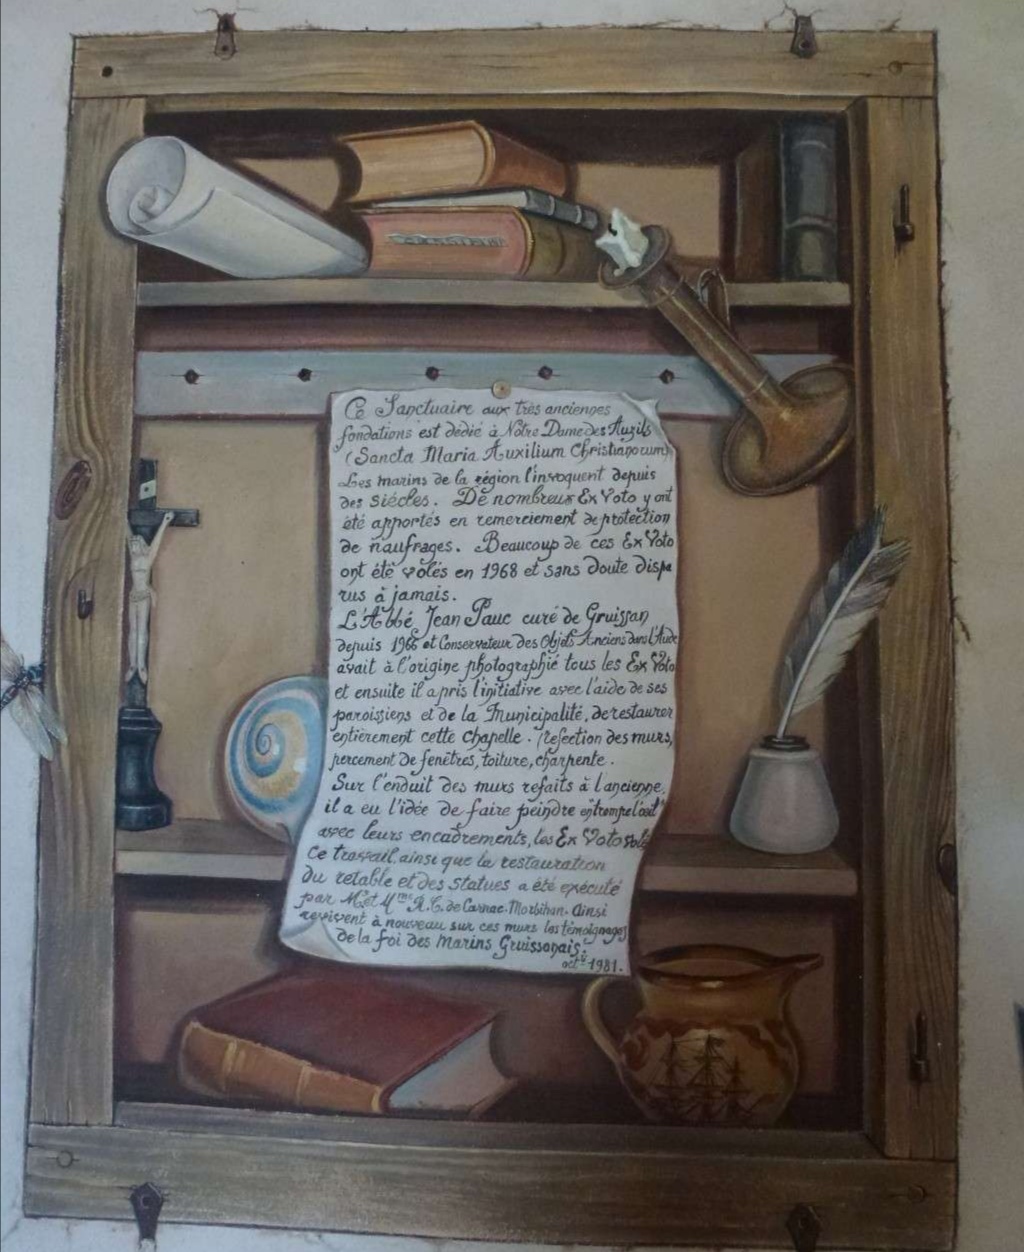 Ce Sanctuaire aux très anciennes
fondations est dédié à Notre Dame des Auzils
(Sancta Maria Auxilium Christianorum)
Les marins de la région l'invoquent depuis
des siécles. De nombreux Ex Voto y ont
été apportés en remerciement de protection
de naufrages. Beaucoup de ces Ex Voto
ont été volés en 1968 et sans doute dispa
rus à jamais.
L'Abbé Jean Pauc curé de Gruissan
depuis 1966 et Conservateur des Objets Anciens dans l'Aude
avait à l'origine photographié tous les Ex Voto
et ensuite il a pris l'initiative avec l'aide de ses
paroissiens et de la Municipalité, de restaurer
entièrement cette chapelle. (refection des murs,
percement de fenêtres, toiture, charpente.
Sur l'enduit des murs refaits à l'ancienne,
il a eu l'idée de faire peindre en trompe l'œil
avec leurs encadrements, les Ex Voto volés
Ce travail, ainsi que la restauration
du retable et des statues a été exécuté
par Mr et Mme R.C. de Carnac. Morbihan. Ainsi
revivent à nouveau sur ces murs les témoignages
de la foi des Marins Gruissanais.
octe 1981.